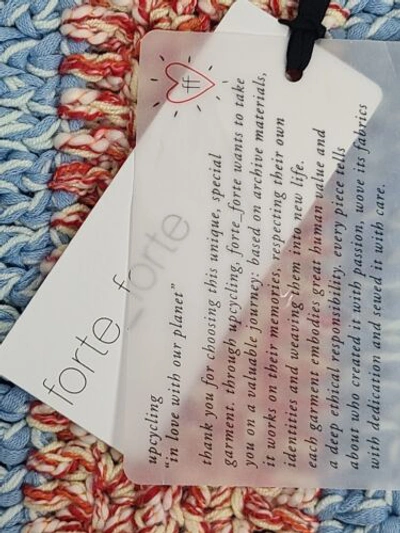 ff
upcycling
"in love with our planet"
thank you for choosing this unique, special
garment. through upcycling, forte_forte wants to take
you on a valuable journey: based on archive materials,
it works on their memories, respecting their own
identities and weaving them into new life.
each garment embodies great human value and
a deep ethical responsibility. every piece tells
about who created it with passion, wove its fabrics
with dedication and sewed it with care.
forte_forte